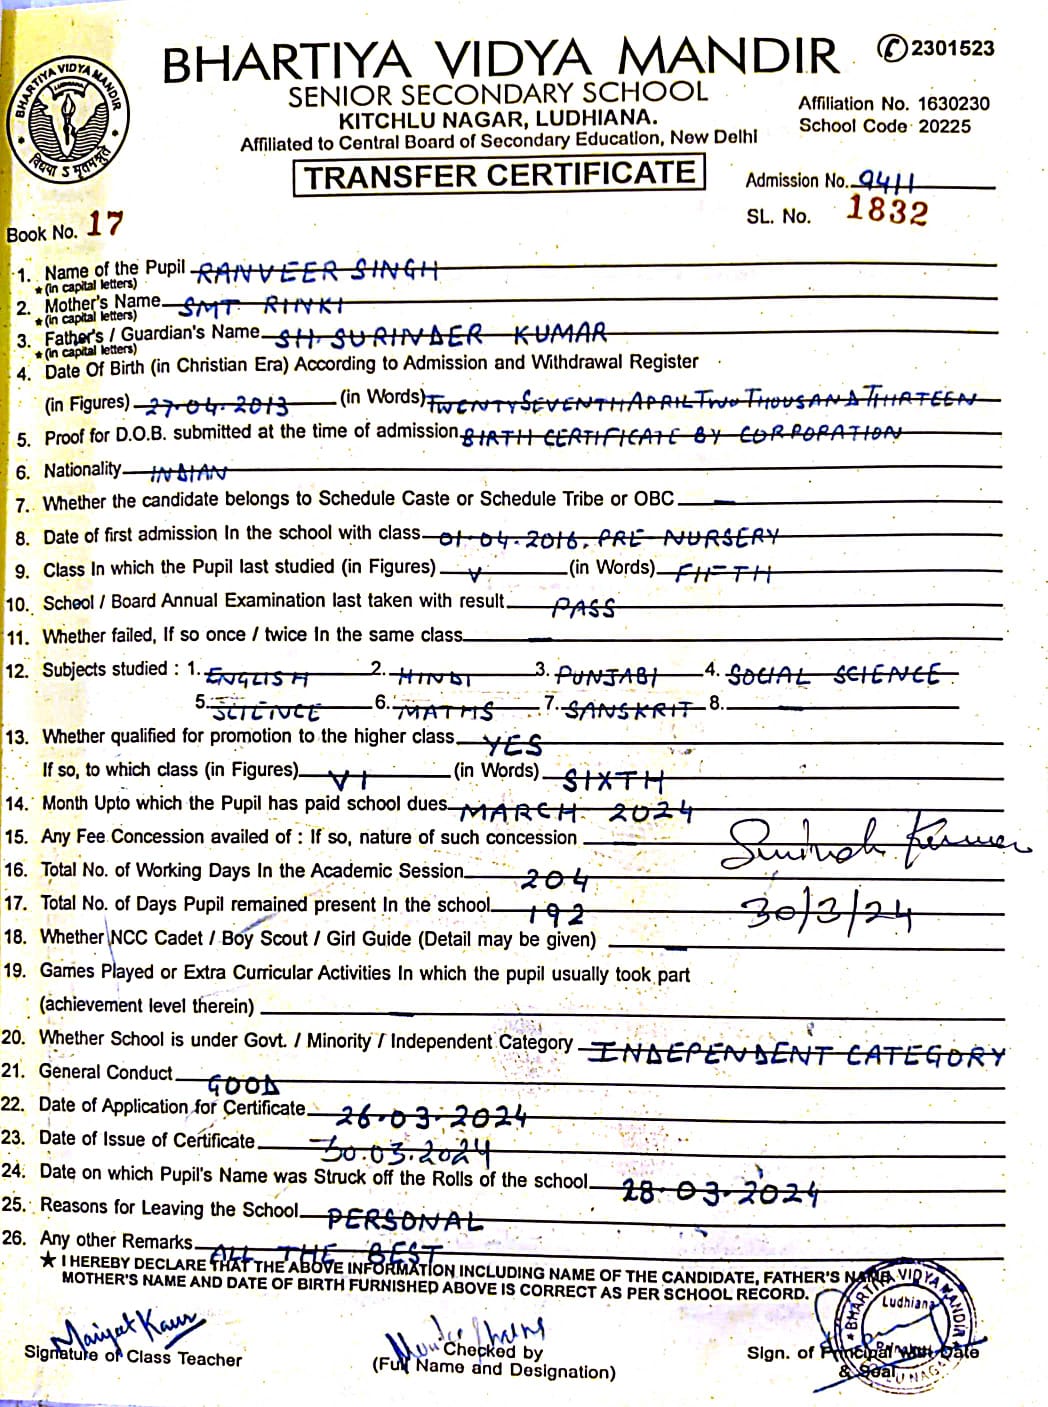 BHARTIYA VIDYA MANDIR
विद्यया ऽ मृतमश्नुते
BHARTIYA VIDYA MANDIR ✆2301523
SENIOR SECONDARY SCHOOL
KITCHLU NAGAR, LUDHIANA.
Affiliated to Central Board of Secondary Education, New Delhi
Affiliation No. 1630230
School Code 20225
TRANSFER CERTIFICATE
Admission No. 9411
SL. No. 1832
Book No. 17
1. Name of the Pupil RANVEER SINGH
★(in capital letters)
2. Mother's Name SMT RINKI
★(in capital letters)
3. Father's / Guardian's Name SH. SURINDER KUMAR
★(in capital letters)
4. Date Of Birth (in Christian Era) According to Admission and Withdrawal Register
(in Figures) 27-04-2013 (in Words) TWENTY SEVENTH APRIL TWO THOUSAND THIRTEEN
5. Proof for D.O.B. submitted at the time of admission BIRTH CERTIFICATE BY CORPORATION
6. Nationality INDIAN
7. Whether the candidate belongs to Schedule Caste or Schedule Tribe or OBC —
8. Date of first admission In the school with class 01-04-2016, PRE-NURSERY
9. Class In which the Pupil last studied (in Figures) V (in Words) FIFTH
10. School / Board Annual Examination last taken with result PASS
11. Whether failed, If so once / twice In the same class —
12. Subjects studied : 1. ENGLISH 2. HINDI 3. PUNJABI 4. SOCIAL SCIENCE
5. SCIENCE 6. MATHS 7. SANSKRIT 8. —
13. Whether qualified for promotion to the higher class YES
If so, to which class (in Figures) VI (in Words) SIXTH
14. Month Upto which the Pupil has paid school dues MARCH 2024
15. Any Fee Concession availed of : If so, nature of such concession — Kumar
16. Total No. of Working Days In the Academic Session 204
17. Total No. of Days Pupil remained present In the school 192 30/3/24
18. Whether NCC Cadet / Boy Scout / Girl Guide (Detail may be given) —
19. Games Played or Extra Curricular Activities In which the pupil usually took part
(achievement level therein) —
20. Whether School is under Govt. / Minority / Independent Category INDEPENDENT CATEGORY
21. General Conduct GOOD
22. Date of Application for Certificate 26-03-2024
23. Date of Issue of Certificate 30.03.2024
24. Date on which Pupil's Name was Struck off the Rolls of the school 28-03-2024
25. Reasons for Leaving the School PERSONAL
26. Any other Remarks ALL THE BEST
★ I HEREBY DECLARE THAT THE ABOVE INFORMATION INCLUDING NAME OF THE CANDIDATE, FATHER'S NAME,
MOTHER'S NAME AND DATE OF BIRTH FURNISHED ABOVE IS CORRECT AS PER SCHOOL RECORD.
BHARTIYA VIDYA MANDIR
Ludhiana
Kaur
Signature of Class Teacher
Checked by
(Full Name and Designation)
Sign. of Principal With Date
& Seal